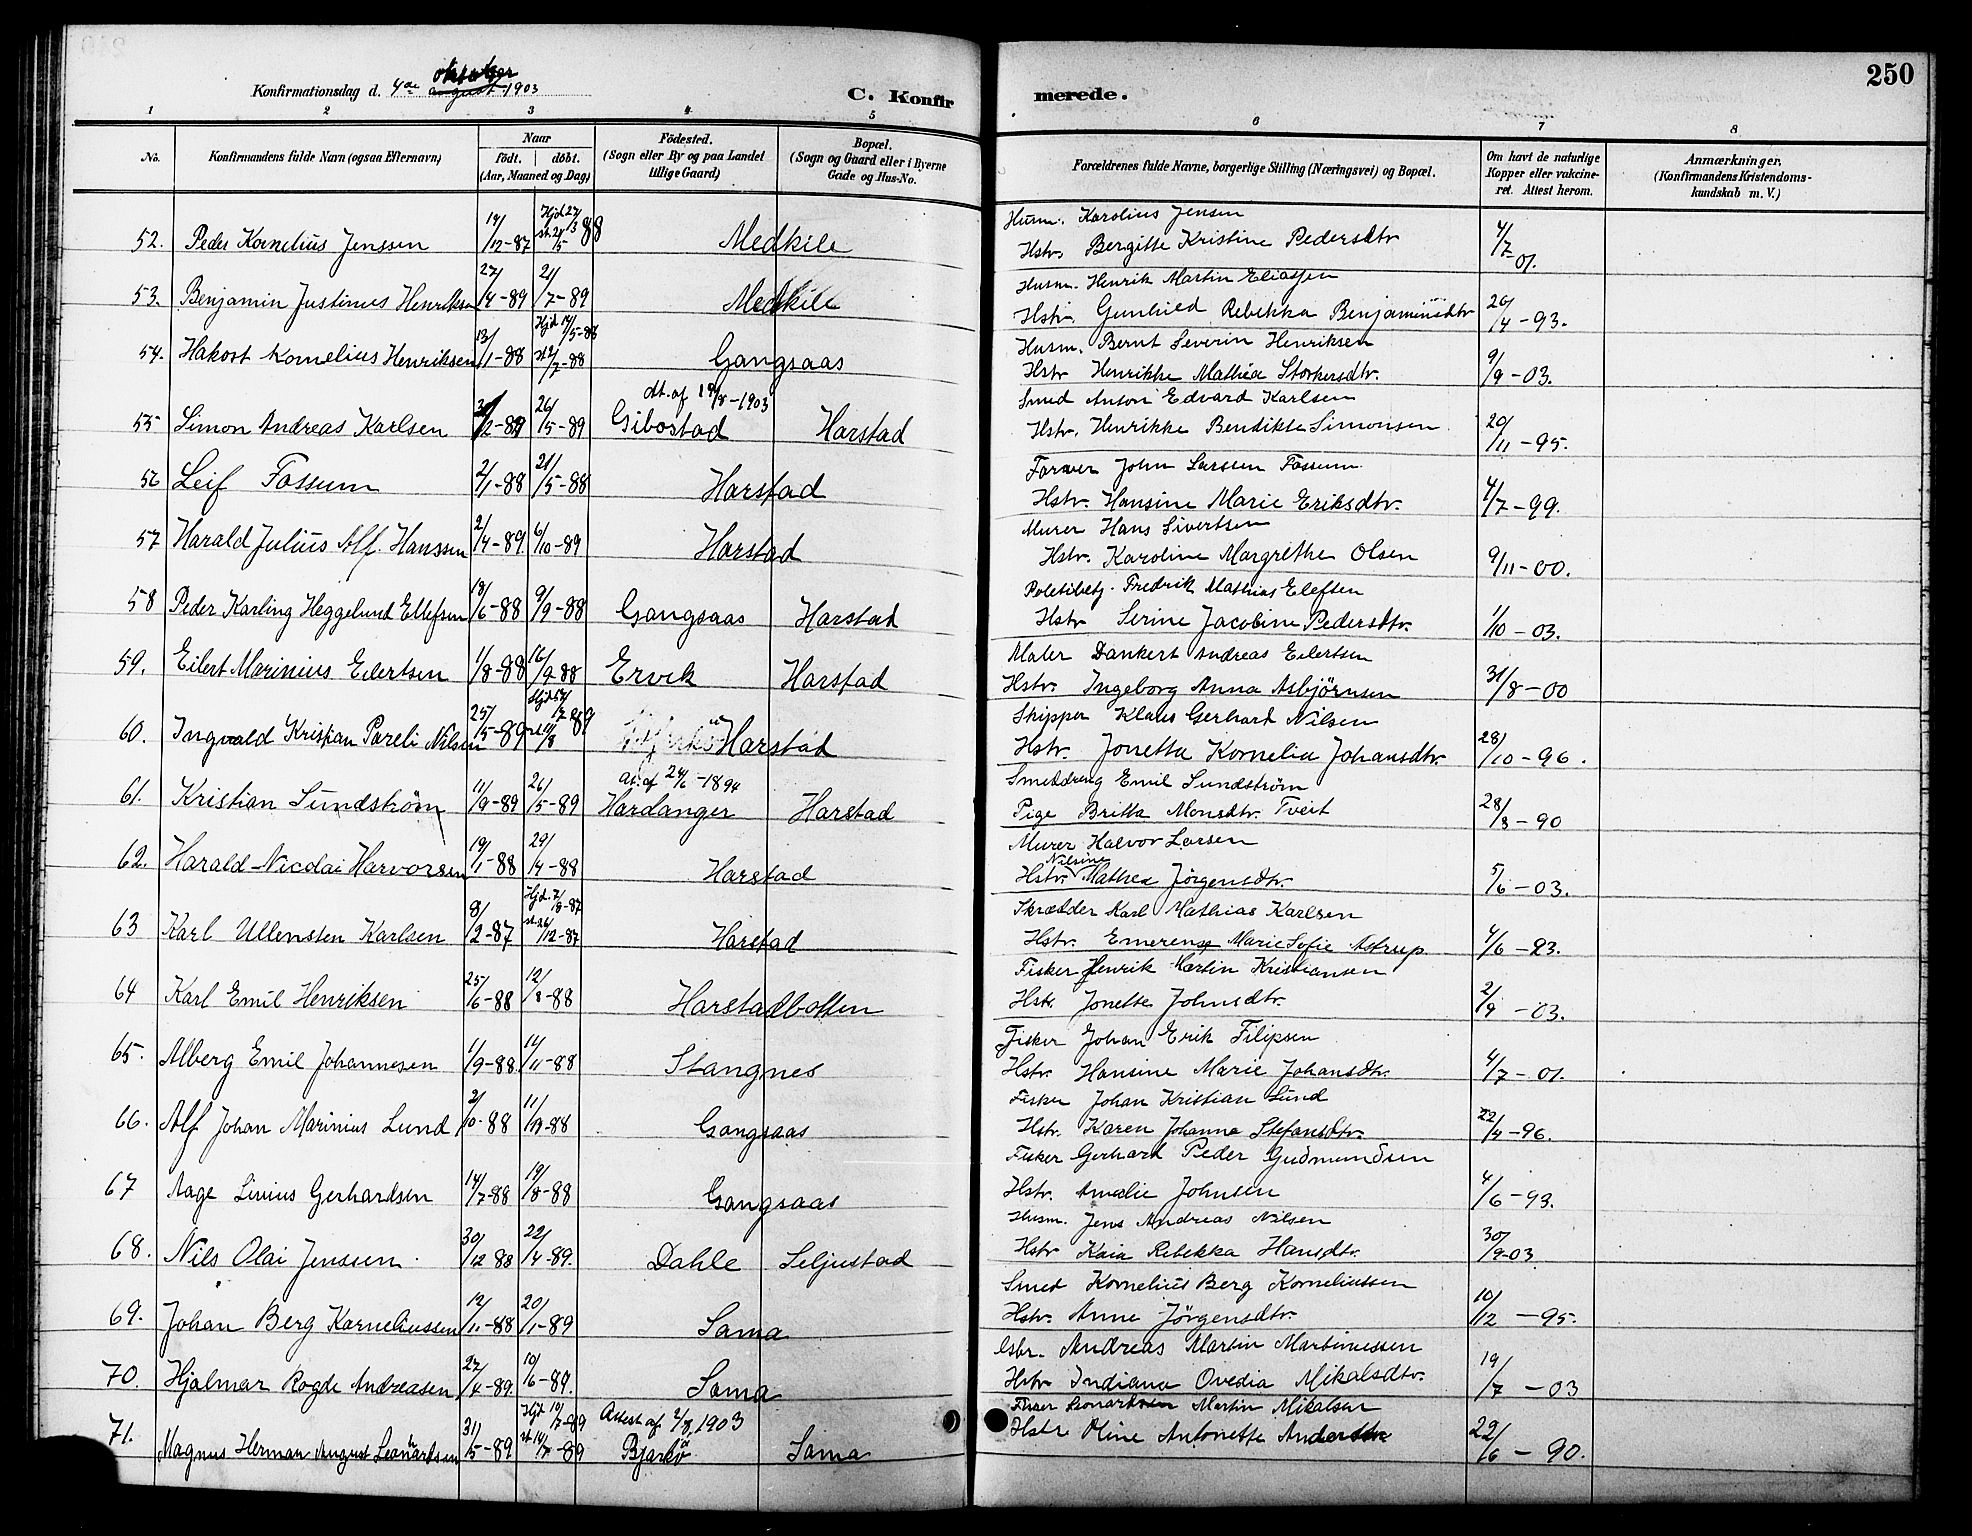 250
oktober
Konfirmationsdag d. 4de august 1903
C. Konfirmerede.
1 2 3 4 5 6 7 8
No. Konfirmandens fulde Navn (ogsaa Efternavn) Naar födt. döbt. (Aar, Maaned og Dag) Födested. (Sogn eller By og paa Landet tillige Gaard) Bopæl. (Sogn og Gaard eller i Byerne Gade og Hus-No. Forældrenes fulde Navne, borgerlige Stilling (Næringsvei) og Bopæl. Om havt de naturlige Kopper eller vakcineret. Attest herom. Anmærkninger. (Konfirmandens Kristendomskundskab m. V.)
52. Peder Kornelius Jenssen 19/12-87 Hjd 27/3 st. 21/5 88 Medkile Husm. Karolius Jensen
Hstr. Bergitte Kristine Pedersdtr 4/7-01.
53. Benjamin Justinus Henriksen 27/4-89 21/7-89 Medkile Husm. Henrik Martin Eliassen
Hstr. Gunhild Rebekka Benjaminsdtr 26/4-93.
54. Hakost Kornelius Henriksen 13/1-88 Hjd 14/5-88 st 2/7-88 Gangsaas Husm. Bernt Severin Henriksen
Hstr Henrikke Mathea Storkersdtr. 9/9-03.
55 Simon Andreas Karlsen /2-89 26/5-89 At. af 19/8-1903 Gibostad Harstad Smed Anton Edvard Karlsen
Hstr. Henrikke Bendikte Simonsen 20/11-95.
56 Leif Fossum 2/1-88 21/5-88 Harstad Farver John Larssen Fossum
Hstr. Hansine Marie Eriksdtr. 4/7-99.
57 Harald Julius Alf. Hanssen 2/4-89 6/10-89 Harstad Murer Hans Sivertsen
Hstr. Karoline Margrethe Olsen 9/11-00.
58 Peder Karling Heggelund Ellefsen 19/6-88 9/9-88 Gangsaas Harstad Politibetj. Fredrik Mathias Elefsen
Hstr Serine Jacobine Pedersdtr. 1/10-03.
59. Eilert Marinius Eilertsen 1/8-88 16/9-88 Ervik Harstad Maler Dankert Andreas Eilertsen
Hstr. Ingeborg Anna Asbjörnsen 31/8-00
60. Ingvald Kristian Pareli Nilsen 25/5-89 Harstad Skipper Klaus Gerhard Nilsen
Hstr. Jonetta Kornelia Johansdtr. 28/10-96.
61. Kristian Sundström 11/9-89 26/5-89 At. af 24/6-1894 Hardanger Harstad Smeddreng Emil Sundström
Pige Britta Monsdtr. Tveit 28/8-90
62. Harald Nicolai Harvorsen 19/1-88 29/4-88 Harstad Murer Halvor Larsen
Hstr. Nilsine Mathea Jörgensdtr. 5/6-03.
63 Karl Ullensten Karlsen 8/2-87 Hjd. 7/8-87 st. 26/12-87 Harstad Skrædder Karl Mathias Karlsen
Hstr. Emerense Marie Sofie Astrup 4/6-83.
64 Karl Emil Henriksen 25/6-88 12/8-88 Harstadbotten Fisker Henrik Martin Kristiansen
Hstr. Jonette Johnsdtr. 2/9-03.
65. Alberg Emil Johannesen 1/9-88 11/11-88 Stangnes Fisker Johan Erik Filipsen
Hstr. Hansine Marie Johansdtr. 4/7-01.
66. Alf Johan Marinius Lund 2/10-88 11/11-88 Gangsaas Fisker Johan Kristian Lund
Hstr. Karen Johanna Stefansdtr. 22/4-96.
67 Aage Livius Gerhardsen 14/7-88 19/8-88 Gangsaas Fisker Gerhard Peder Gudmundsen
Hstr. Amalie Johnsen 4/6-93.
68. Nils Olai Jenssen 30/12 88 22/4-89. Dahle Seljustad Husm. Jens Andreas Nilsen
Hstr Kaia Rebekka Hansdtr. 30/9-03
69. Johan Berg Korneliussen 12/11-88 20/1-89 Sama Smed Kornelius Berg Korneliussen
Hstr. Anne Jörgensdtr. 10/12-95.
70. Hjalmar Rogde Andreasen 27/4-89. 10/6-89. Sama Gbr. Andreas Martin Martinussen
Hstr Indiana Ovedia Mikalsdtr. 19/7-03
71. Magnus Herman August Leonardsen 31/5-89 Hjd 10/7-89 st 14/7-89 Attest af 2/8 1903 Bjarkö Sama Fisker Leonard Martin Mikalsen
Hstr Oline Antonette Andersdtr 22/6-90.